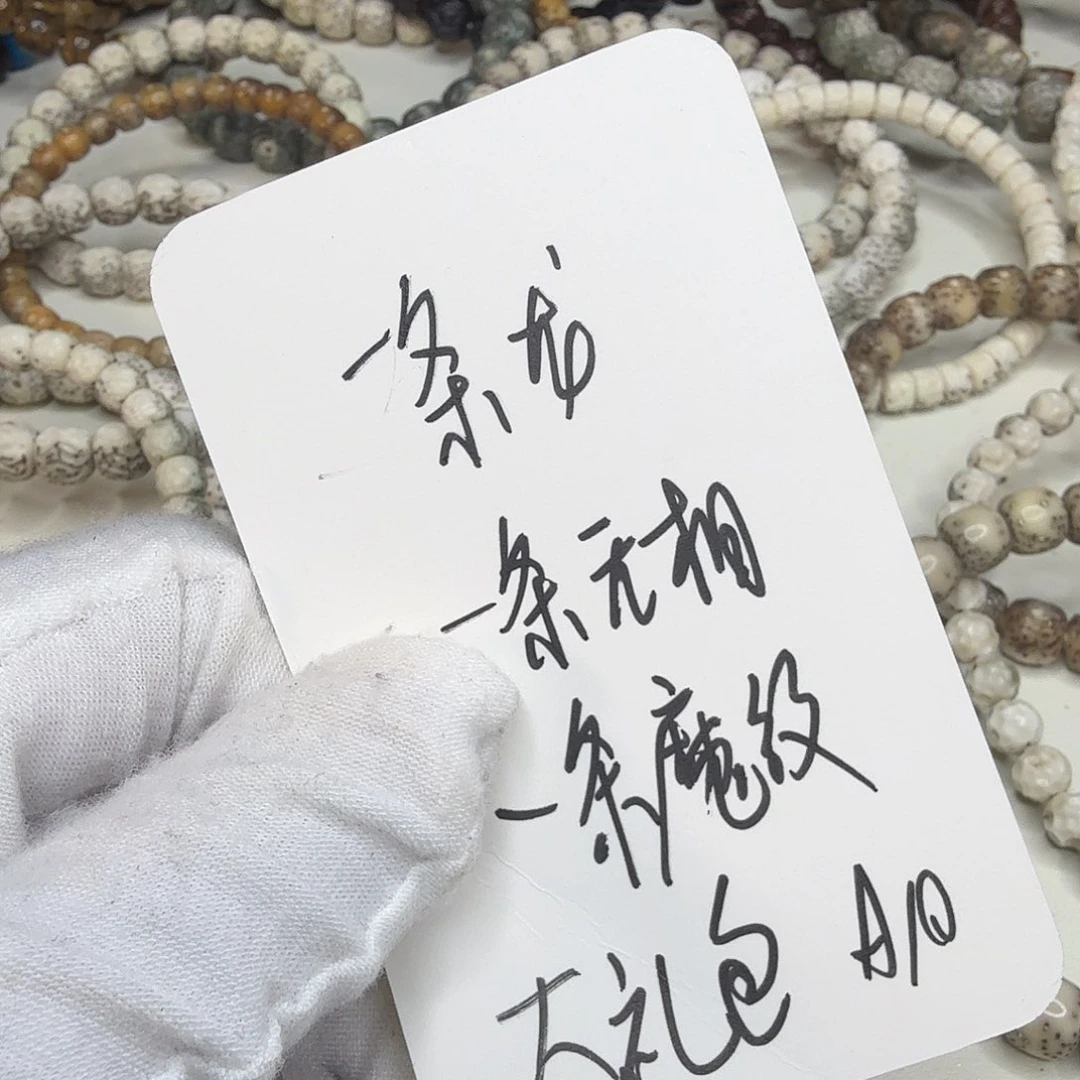 一条龙
一条无相
一条魔纹
大礼包 A10